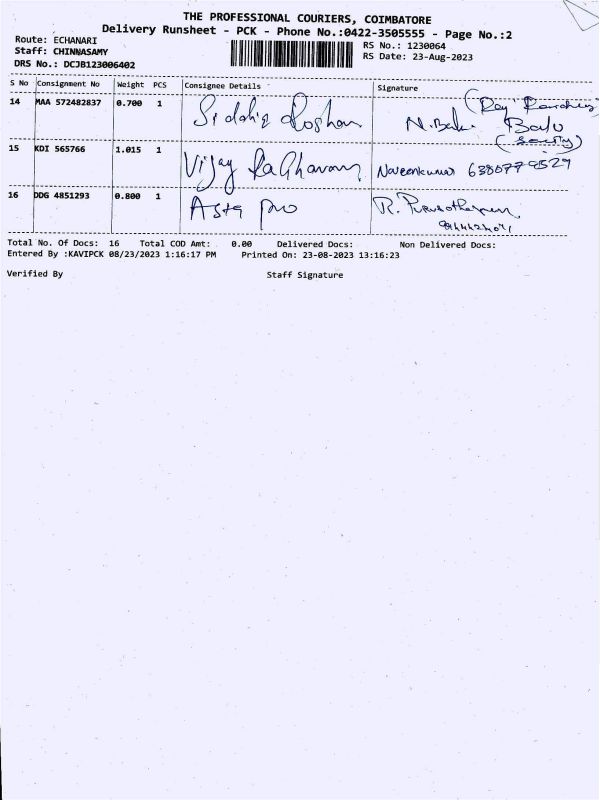 THE PROFESSIONAL COURIERS, COIMBATORE
Delivery Runsheet - PCK - Phone No.:0422-3505555 - Page No.:2
Route: ECHANARI
Staff: CHINNASAMY
DRS No.: DCJB123006402
RS No.: 1230064
RS Date: 23-Aug-2023
S No Consignment No Weight PCS Consignee Details Signature
14 MAA 572482837 0.700 1 Siddhiq Roshan N. Babu Babu
15 KDI 565766 1.015 1 Vijay RaGhavan Naveenkumar 6380779529
16 DDG 4851293 0.800 1 Asta pro R. Purusothaman
Total No. Of Docs: 16 Total COD Amt: 0.00 Delivered Docs: Non Delivered Docs:
Entered By :KAVIPCK 08/23/2023 1:16:17 PM Printed On: 23-08-2023 13:16:23
Verified By Staff Signature